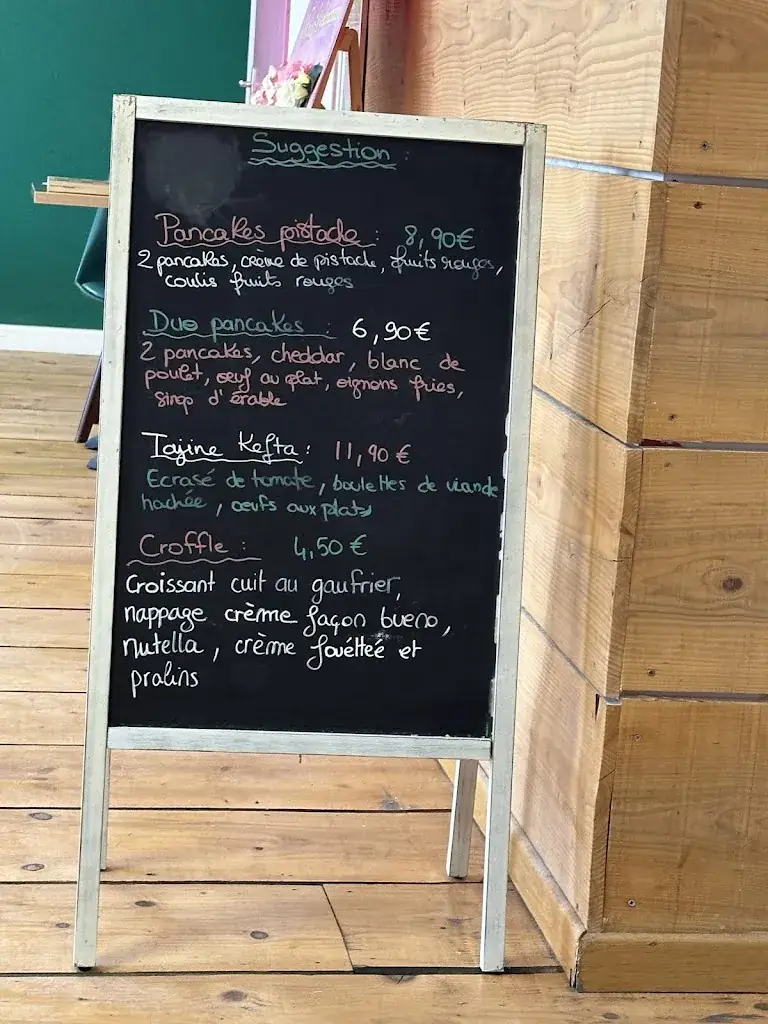 Suggestion :
Pancakes pistache : 8,90€
2 pancakes, crème de pistache, fruits rouges,
coulis fruits rouges
Duo pancakes : 6,90€
2 pancakes, cheddar, blanc de
poulet, oeuf au plat, oignons fries,
sirop d'érable
Tajine Kefta : 11,90 €
Ecrasé de tomate, boulettes de viande
hachée, oeufs aux plats
Croffle : 4,50 €
Croissant cuit au gaufrier,
nappage crème façon bueno,
nutella, crème fouéttée et
pralins